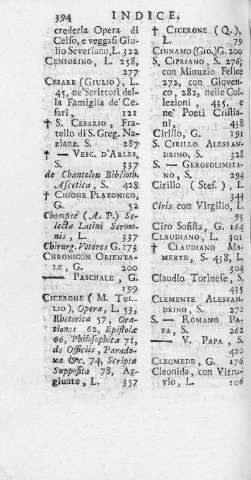 394 INDICE.
crederla Opera di
Celso, e veggasi Giu-
lio Severiano, L. 322
CENSORINO, L. 258,
277
CESARE (GIULIO), L.
45, ne' Scrittori del-
la Famiglia de' Ce-
sari, 121
† S. CESARIO, Fra-
tello di S. Greg. Na-
zianz. S. 287
† — VESC. D'ARLES,
S. 337
de Chantelou Biblioth.
Ascetica, S. 428
† CHIONE PLATONICO,
G. 52
Chompré (A. P.) Se-
lecta Latini Sermo-
nis, L. 337
Chirurg. Veteres G. 173
CHRONICON ORIENTA-
LE, G. 200
— PASCHALE, G.
199
CICERONE (M. TUL-
LIO), Opera, L. 53,
Rhetorica 57, Ora-
tiones 62, Epistolæ
66, Philosophica 71,
de Officiis, Parado-
xa &c. 74, Scripta
Supposita 78, Ag-
giunte, L. 357
† CICERONE (Q.),
L. 79
CINNAMO (Gio.) G. 209
S. CIPRIANO, S. 276;
con Minuzio Felice
272, con Gioven-
co, 282, nelle Col-
lezioni, 435, e
ne' Poeti Cristia-
ni, 438
CIRILLO, G. 191
S. CIRILLO ALESSAN-
DRINO, S. 328
S. — GEROSOLIMITA-
NO, S. 294
Cirillo (Stef.), L.
344
Ciris con Virgilio, L.
93
Ciro Sofista, G. 164
CLAUDIANO, L. 301
† CLAUDIANO MA-
MERTE, S. 438, L.
304
Claudio Torinese, S.
435
CLEMENTE ALESSAN-
DRINO, S. 270
S. — ROMANO PA-
PA, S. 262
— V. PAPA, S.
420
CLEOMEDE, G. 176
Cleonida, con Vitru-
vio, L. 106